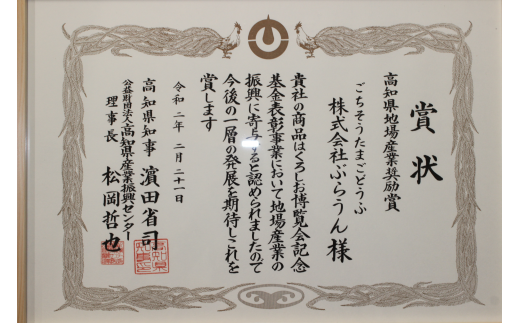 賞状
高知県地場産業奨励賞
ごちそうたまごどうふ
株式会社ぶらうん 様
貴社の商品はくろしお博覧会記念
基金表彰事業において地場産業の
振興に寄与すると認められましたので
今後の一層の発展を期待しこれを
賞します
令和二年 二月二十一日
高知県知事 濵田省司
公益財団法人高知県産業振興センター
理事長 松岡哲也
高知県
知事印